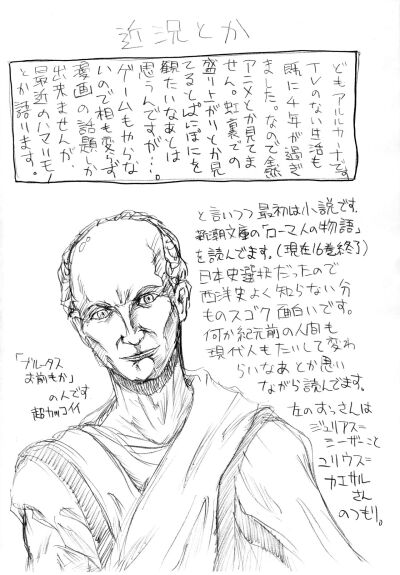 近況とか
どもアルカードです。
TVのない生活も
既に4年が過ぎ
ました。なので全然
アニメとか見てま
せん。虹裏での
盛り上がりとか見
てるとぱにぽにを
観たいなあとは
思うんですが…。
ゲームもやらな
いので相も変らず
漫画の話題しか
出来ませんが、
最近のハマりモノ
とか語ります。
と言いつつ最初は小説です。
新潮文庫の「ローマ人の物語」
を読んでます。(現在16巻終了)
日本史選択だったので
西洋史よく知らない分
ものスゴク面白いです。
何か紀元前の人間も
現代人もたいして変わ
らいなあとか思い
ながら読んでます。
左のおっさんは
ジュリアス=
シーザーこと
ユリウス=
カエサル
さん
のつもり。
「ブルータス
お前もか」
の人です
超カッコイイ